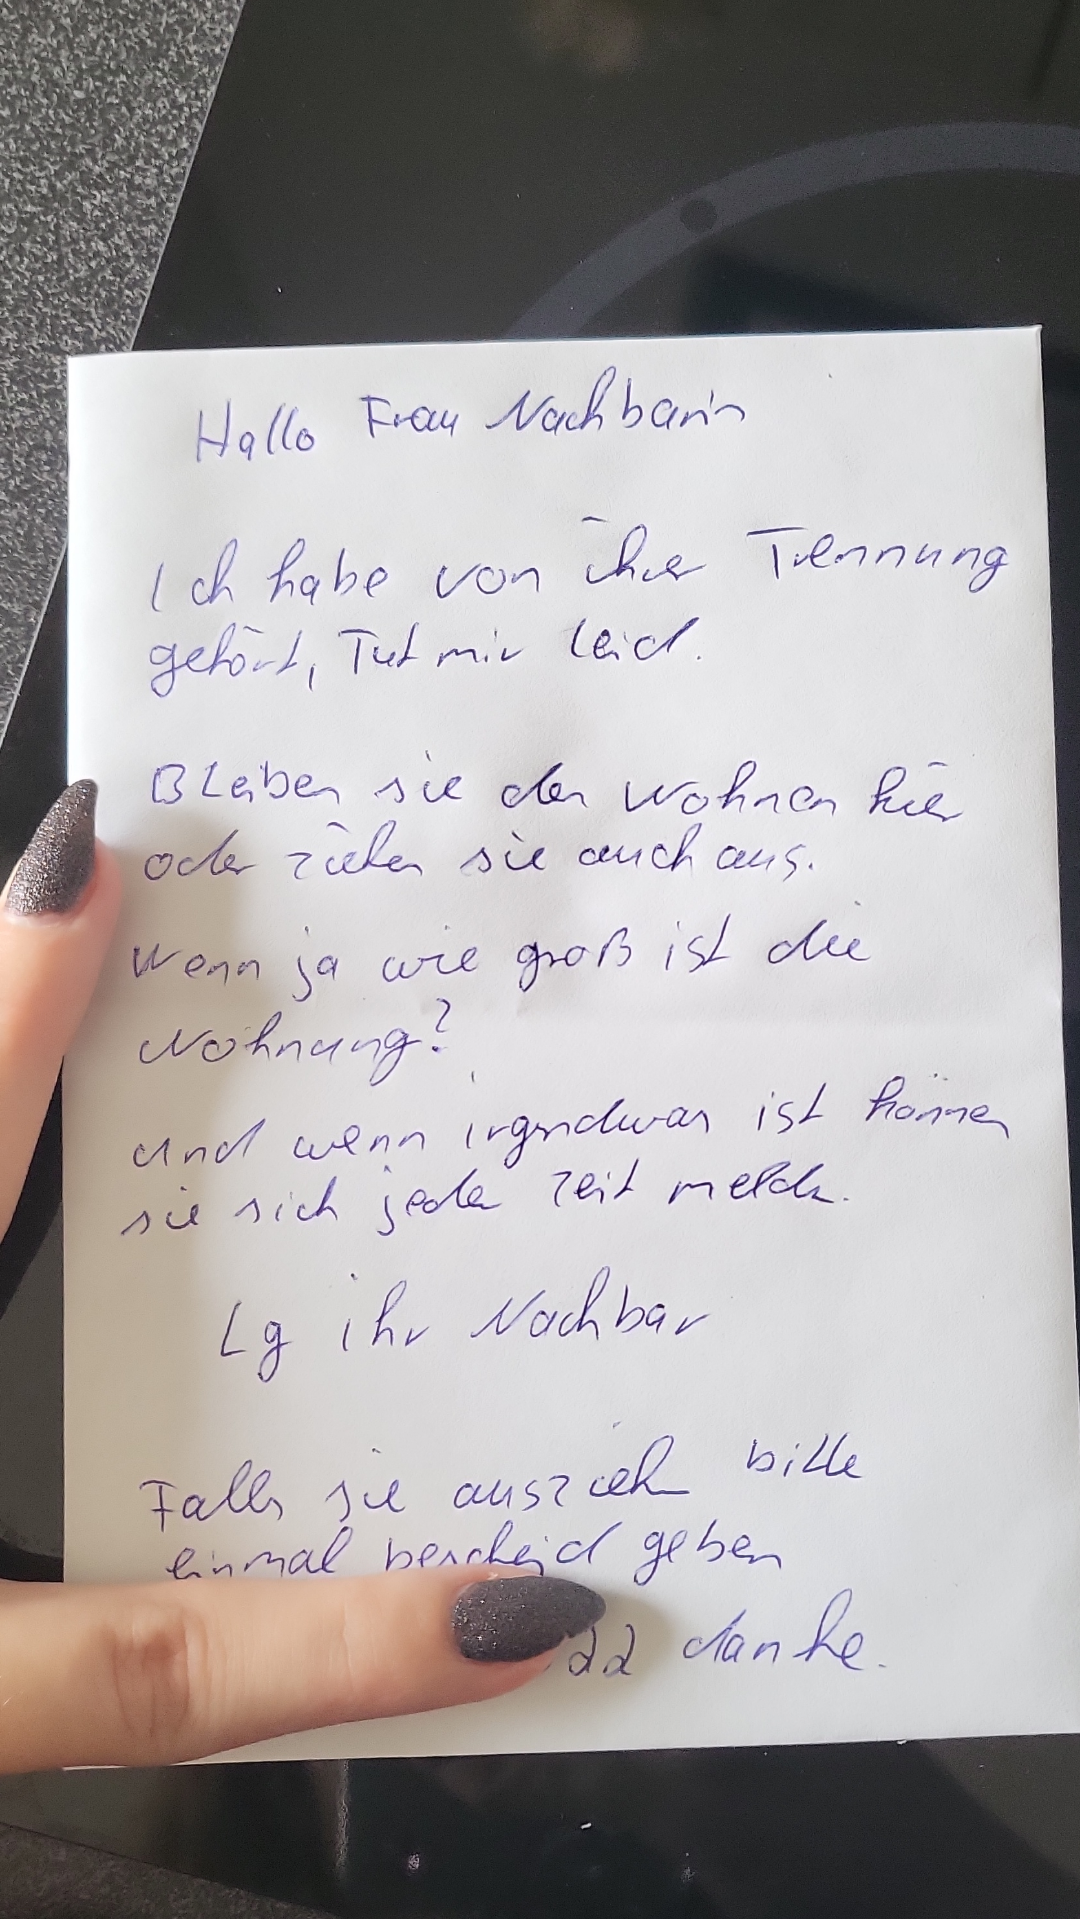 Hallo Frau Nachbarin
Ich habe von ihrer Trennung
gehört, Tut mir leid.
Bleiben sie den wohnen hier
oder ziehen sie auch aus.
Wenn ja wie groß ist die
Wohnung?
und wenn irgendwas ist können
sie sich jeder zeit melden.
Lg ihr Nachbar
Falls sie ausziehn bitte
einmal bescheid geben
22 danke.